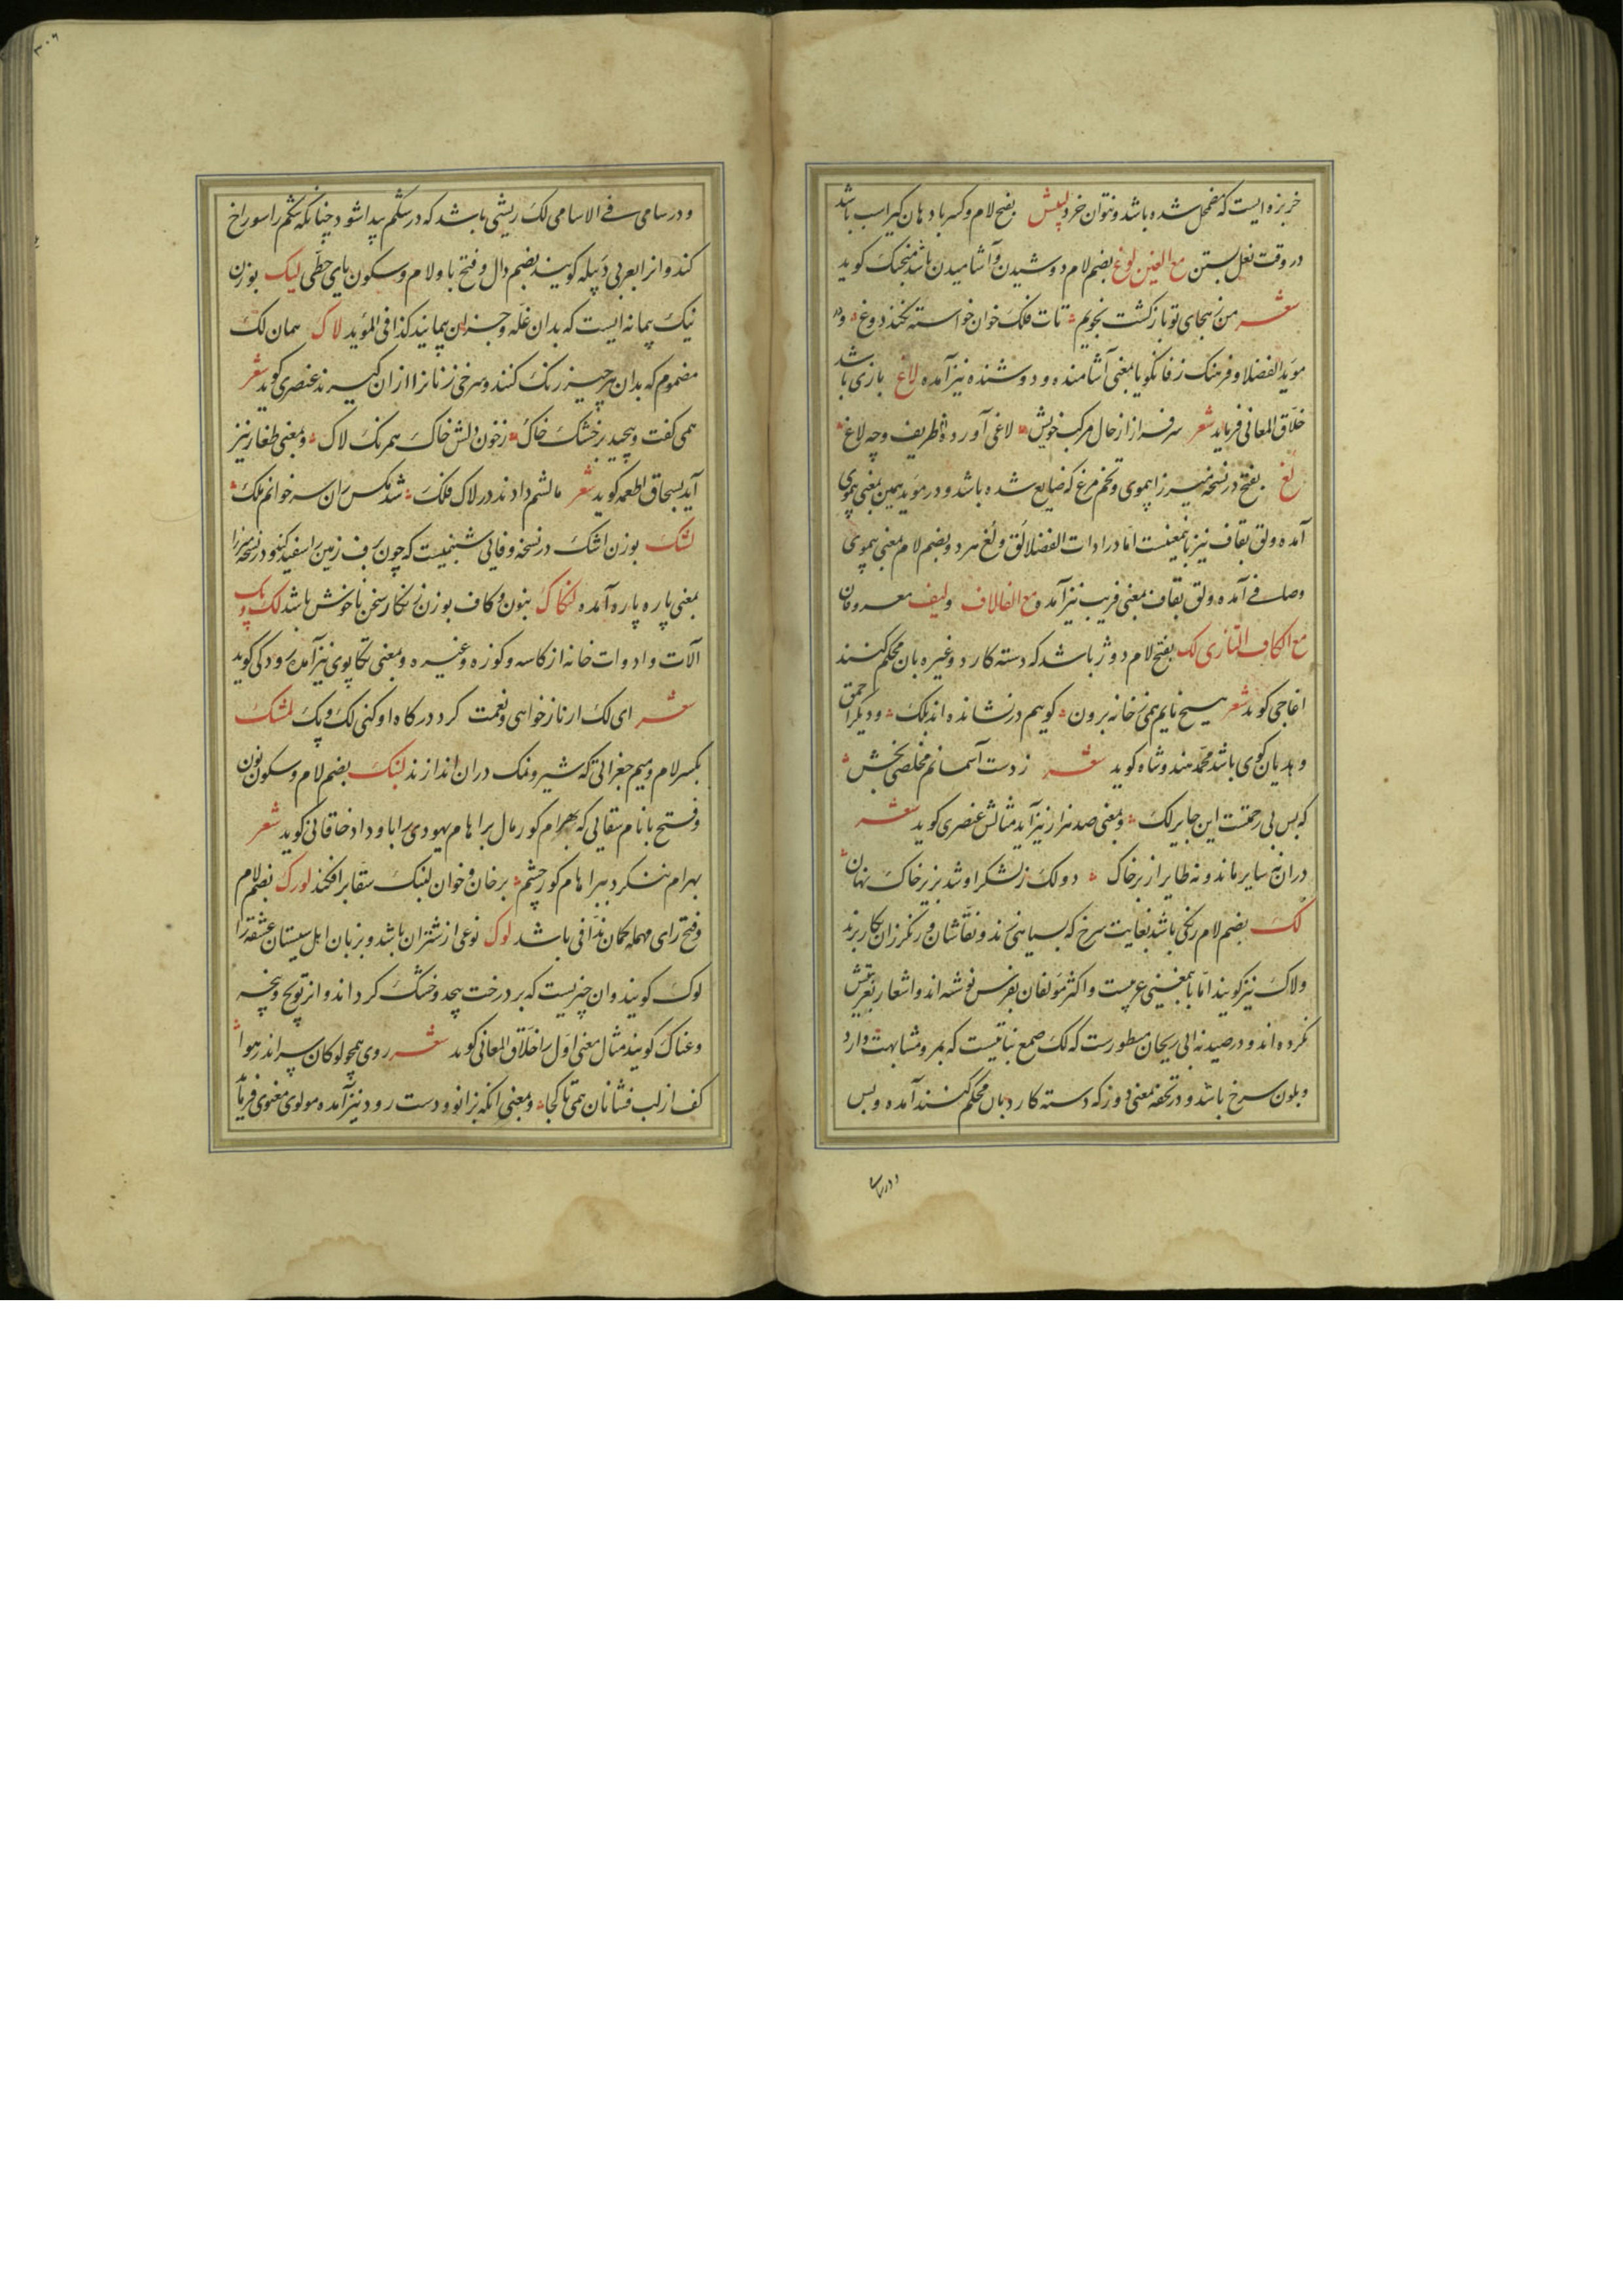 خربزه ایست که مضمحل شده باشد و نتوان خرد لبیش بفتح لام و کسر با دهان کیر اسب باشد
در وقت نعل بستن مع الغین لوغ بضم لام دوشیدن و آشامیدن باشد منجیک کوید
شعر من ز هجای تو باز کشت نجویم تات فلک خوان خواسته نکند دوغ و در
موید الفضلا و فرهنک زفانکویا بمعنی آشامنده و دوشنده نیز آمده لاغ بازی باشد
خلاق المعانی فرماید شعر سرفراز از حال مرکب خویش لاغی آورد و ظریف و چه لاغ
لغ بفتح در نسخه میرزا بیموی و تخم مرغ که ضایع شده باشد و در موید همین بمعنی بیموی
آمده ولق بقاف نیز باینمعنیست اما در ادات الفضلا لق و لغ هر دو بضم لام بمعنی بیموی
وصلی آمده ولق بقاف بمعنی فریب نیز آمده و مع الفا لاف و لیف معروفان
مع الکاف التازی لک بفتح لام دوژ باشد که دسته کارد و غیره بآن محکم کنند
اغاجی کوید شعر هیچ نایم همی ز خانه برون کوییم در نشانده اند بلک و دیکر احمق
و هذیان کوی باشد محمد هندوشاه کوید شعر ز دست آسمانم مخلصی بخش
که بس بی رحمتست این جابر لک و بمعنی صد هزار نیز آید مثالش عنصری کوید شعر
دران نه سایر ماند و نه طایر از بر خاک دو لک ز لشکر او شد بزیر خاک نهان
لک بضم لام رنکی باشد بغایت سرخ که بسیاهی زند و نقاشان و رنکرزان بکار برند
ولاک نیز کویند اما باینمعنی عربیست و اکثر مؤلفان بفرس نوشته اند و اشعار بعربیتش
نکرده اند و در صیدنه ابی ریحان مسطورست که لک صمغ نباتیست که بمرو مشابهت دارد
و بلون سرخ باشد و در تحفه بمعنی دوز که دسته کارد بان محکم کنند آمده و بس
و در سامی
۳۰۶
و در سامی فی الاسامی لک ریشی باشد که در شکم پیدا شود چنانکه شکم را سوراخ
کند و انرا بعربی دبیله کویند بضم دال و فتح با و لام و سکون یای حطی لیک بوزن
نیک پیمانه ایست که بدان غله و جز ان پیمایند کذا فی المؤید لاک همان لک
مضموم که بدان هر چیز رنک کنند و سرخی زنانرا ازان کیرند عنصری کوید شعر
همی کفت و پیچید بر خشک خاک ز خون دلش خاک همرنک لاک و بمعنی طغار نیز
آید بسحاق اطعمه کوید شعر مالشم دادند در لاک فلک شد مکس ران سر خوانم ملک
لشک بوزن اشک در نسخه وفایی شبنمیست که چون برف زمین را سفید کند و در نسخه میرزا
بمعنی پاره پاره آمده و لنکاک بنون و کاف بوزن زنکار سخن ناخوش باشد لک و پک
آلات و ادوات خانه از کاسه و کوزه و غیره و بمعنی تکاپوی نیز آمده رودکی کوید
شعر ای لک ار ناز خواهی و نعمت کرد درکاه او کنی لک و پک لمشک
بکسر لام و میم جغراتی که شیر و نمک دران اندازند لنبک بضم لام و سکون نون
و فتح با نام سقایی که بهرام کور مال براهام یهودی را باو داد خاقانی کوید شعر
بهرام ننکرد ببراهام کور چشم بر خان و خوان لنبک سقا برافکند لورک بضم لام
و فتح رای مهمله کمان ندافی باشد لوک نوعی از شتران باشد و بزبان اهل سیستان عشقه را
لوک کویند و ان چیزیست که بر درخت پیچد و خشک کرداند و انر نویج و پیچه
و غناک کویند مثال معنی اول را خلاق المعانی کوید شعر روی همچو لوکان سر اندر هوا
کف از لب فشانان همی تا کجا و بمعنی انکه بزانو و دست رود نیز آمده مولوی معنوی فرماید